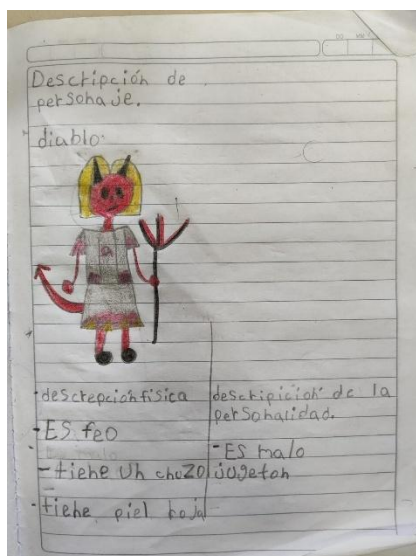 Descripción de
personaje.
diablo.
-descrepción física
-ES feo
Es malo
-tiene un chuzo
-tiene piel roja
descripición de la
personaridad.
-ES malo
jugeton